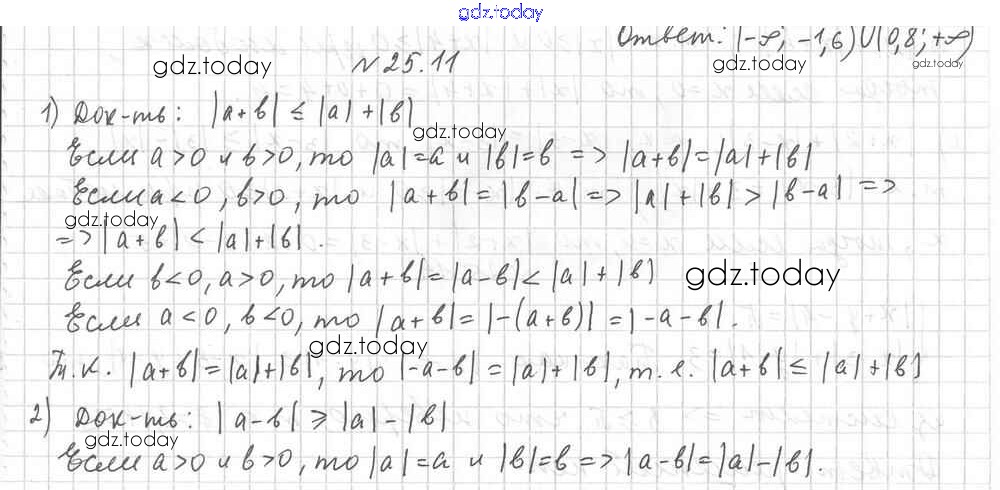 gdz.today
Ответ: (-∞; -1,6)∪(0,8; +∞)
gdz.today
gdz.today
№ 25.11
1) Док-ть: |a+b| ≤ |a|+|b|
gdz.today
Если a>0 и b>0, то |a|=a и |b|=b => |a+b|=|a|+|b|
Если a<0, b>0, то |a+b|=|b-a| => |a|+|b| > |b-a| =>
gdz.today
=> |a+b| < |a|+|b|.
Если b<0, a>0, то |a+b|=|a-b|<|a|+|b|
gdz.today
Если a<0, b<0, то |a+b|=|-(a+b)|=|-a-b|.
gdz.today
Т.к. |a+b|=|a|+|b|, то |-a-b|=|a|+|b|, т.е. |a+b| ≤ |a|+|b|
2) Док-ть: |a-b| ≥ |a|-|b|
gdz.today
Если a>0 и b>0, то |a|=a и |b|=b => |a-b|=|a|-|b|.